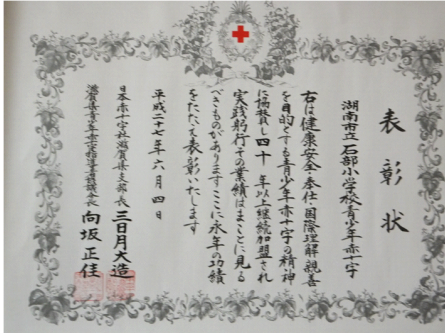 表彰状
湖南市立石部小学校青少年赤十字
右は健康安全・奉仕・国際理解親善
を目的とする青少年赤十字の精神
に協賛し四十年以上継続加盟され
実践躬行その業績はまことに見る
べきものがありますここに永年の功績
をたたえ表彰いたします
平成二十七年六月四日
日本赤十字社滋賀県支部長 三日月大造
滋賀県青少年赤十字指導者協議会長 向坂正佳